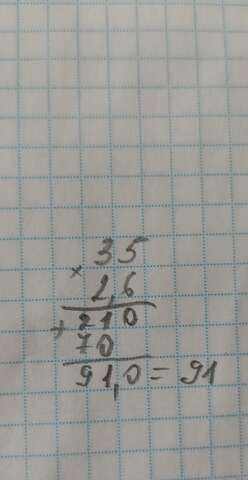 35
×
2,6
+ 210
70
91,0 = 91